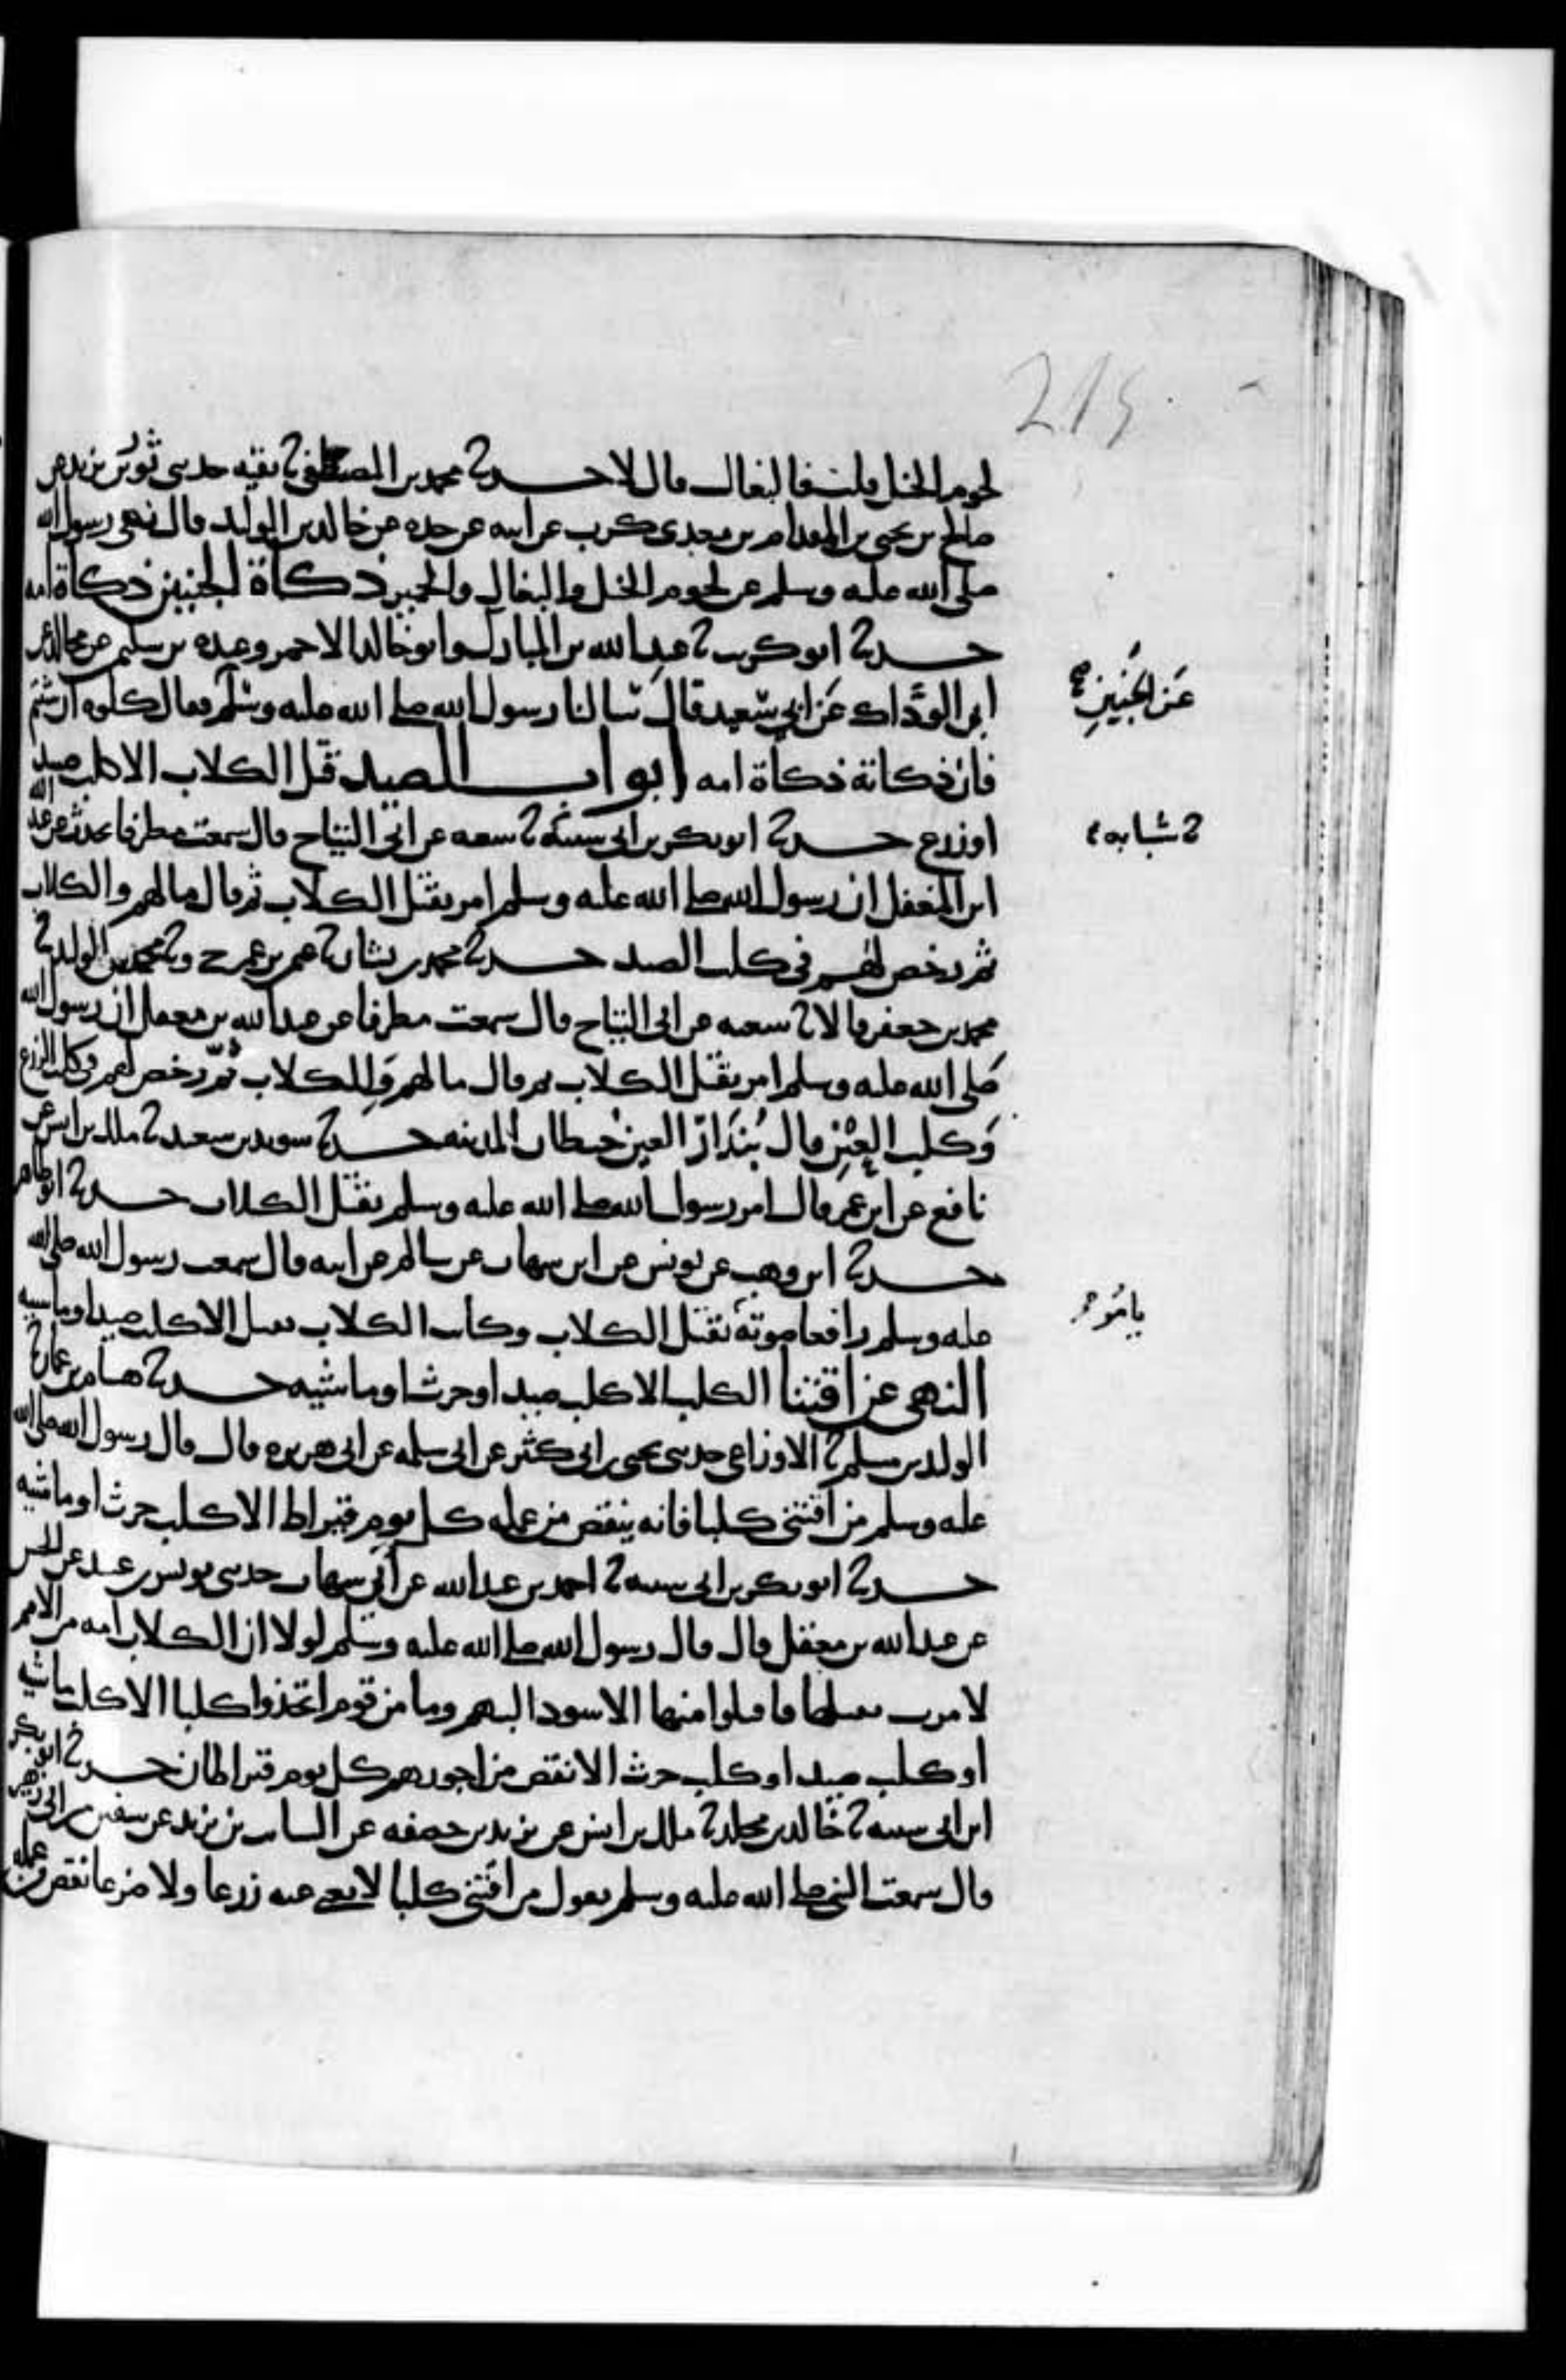 215
لحوم الخيل قلت فالبغال قال لا حدثنا محمد بن المصطفى نا بقيه حدثني ثور بن يزيد عن
صالح بن يحيى بن المقدام بن معدي كرب عن ابيه عن جده عن خالد بن الوليد قال نهى رسول الله
صلى الله عليه وسلم عن لحوم الخيل والبغال والحمير ذكاة الجنين ذكاة امه
حدثنا ابو كريب نا عبد الله بن المبارك وابو خالد الاحمر وعبده بن سليمن عن مجالد عن
ابي الوداك عن ابي سعيد قال سالنا رسول الله صلى الله عليه وسلم فقال كلوه ان شئتم
عن الجنين صح
فان ذكاته ذكاة امه ابواب الصيد قتل الكلاب الا كلب صيد
او زرع حدثنا ابو بكر بن ابي شيبه نا شعبه عن ابي التياح قال سمعت مطرفا يحدث عن عبد الله
نا شبابه
ابن المغفل ان رسول الله صلى الله عليه وسلم امر بقتل الكلاب ثم قال ما لهم والكلاب
ثم رخص لهم في كلب الصيد حدثنا محمد بن بشار نا عثمن بن عمر ح ونا محمد بن الوليد نا
محمد بن جعفر قالا نا شعبه عن ابي التياح قال سمعت مطرفا عن عبد الله بن مغفل ان رسول الله
صلى الله عليه وسلم امر بقتل الكلاب ثم قال ما لهم وللكلاب ثم رخص لهم في كلب الزرع
وكلب العين قال بندار العين حيطان المدينه حدثنا سويد بن سعيد نا ملك بن انس عن
نافع عن ابن عمر قال امر رسول الله صلى الله عليه وسلم بقتل الكلاب حدثنا ابو طاهر
حدثنا ابن وهب عن يونس عن ابن شهاب عن سالم عن ابيه قال سمعت رسول الله صلى الله
عليه وسلم رافعا صوته بقتل الكلاب وكانت الكلاب تقتل الا كلب صيد او ماشيه
يامر
النهي عن اقتنا الكلب الا كلب صيد او حرث او ماشيه حدثنا هشام بن عمار نا
الوليد بن مسلم نا الاوزاعي حدثني يحيى بن ابي كثير عن ابي سلمه عن ابي هريره قال قال رسول الله صلى الله
عليه وسلم من اقتنى كلبا فانه ينقص من عمله كل يوم قيراط الا كلب حرث او ماشيه
حدثنا ابو بكر بن ابي شيبه نا احمد بن عبد الله عن ابي شهاب حدثني يونس بن عبيد عن الحسن
عن عبد الله بن مغفل قال قال رسول الله صلى الله عليه وسلم لولا ان الكلاب امه من الامم
لامرت بقتلها فاقتلوا منها الاسود البهيم وما من قوم اتخذوا كلبا الا كلب ماشيه
او كلب صيد او كلب حرث الا نقص من اجورهم كل يوم قيراطان حدثنا ابو بكر
ابن ابي شيبه نا خالد بن مخلد نا ملك بن انس عن يزيد بن خصيفه عن السايب بن يزيد عن سفين بن ابي زهير
قال سمعت النبي صلى الله عليه وسلم يقول من اقتنى كلبا لا يغني عنه زرعا ولا ضرعا نقص من عمله